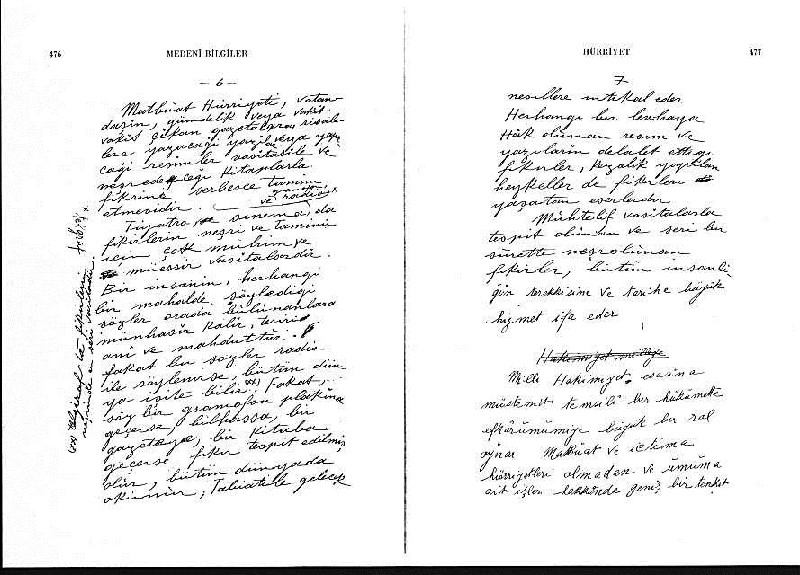 476
MEDENİ BİLGİLER
— 6 —
Matbuat Hürriyeti, vatan-
daşın, gündelik veya vakit
vakit çıkan gazetelere, risale-
lere yazacağı yazı veya yapa-
cağı resimler vasıtasile ve
neşredeceği kitaplarla
fikrini serbesce tamim
etmesidir.
Tiyatro sinema, da
fikirlerin neşri ve tamimi
için çok mühim ve
müessir vasıtalardır.
Bir insanın, herhangi
bir mahalde söylediği
sözler orada bulunanlara
münhasır kalır, tesiri
ani ve mahduttur.
fakat bu sözler radio
ile söylenirse bütün dün-
ya işite bilir (xx) Fakat,
söz bir gramofon plakına
geçerse bilhassa, bir
gazeteye, bir kitaba
geçerse fikir tespit edilmiş
olur, bütün dünyada
okunur;
ve radio x
(xx) Telgraf ta fikirlerin
HÜRRİYET
477
7
nesillere intikal eder.
Herhangi bir levhaya
Hâk olunan resim ve
yazıların delalet ettiği
fikirler, Kezalik yapılan
heykeller de fikirleri
yaşatan eserlerdir
Muhtelif vasıtalarla
tespit olunan ve seri bir
surette neşrolunan
fikirler, bütün insanlı-
ğın terakkisine ve tarihe büyük
hizmet ifa eder
Hakimiyet milliye
Milli Hakimiyet esasına
müstenit temsilî bir hükûmette
efkârıumumiye büyük bir rol
oynar Matbuat ve içtima
hürriyetleri olmadan ve umuma
ait işler hakkında geniş bir tenkit